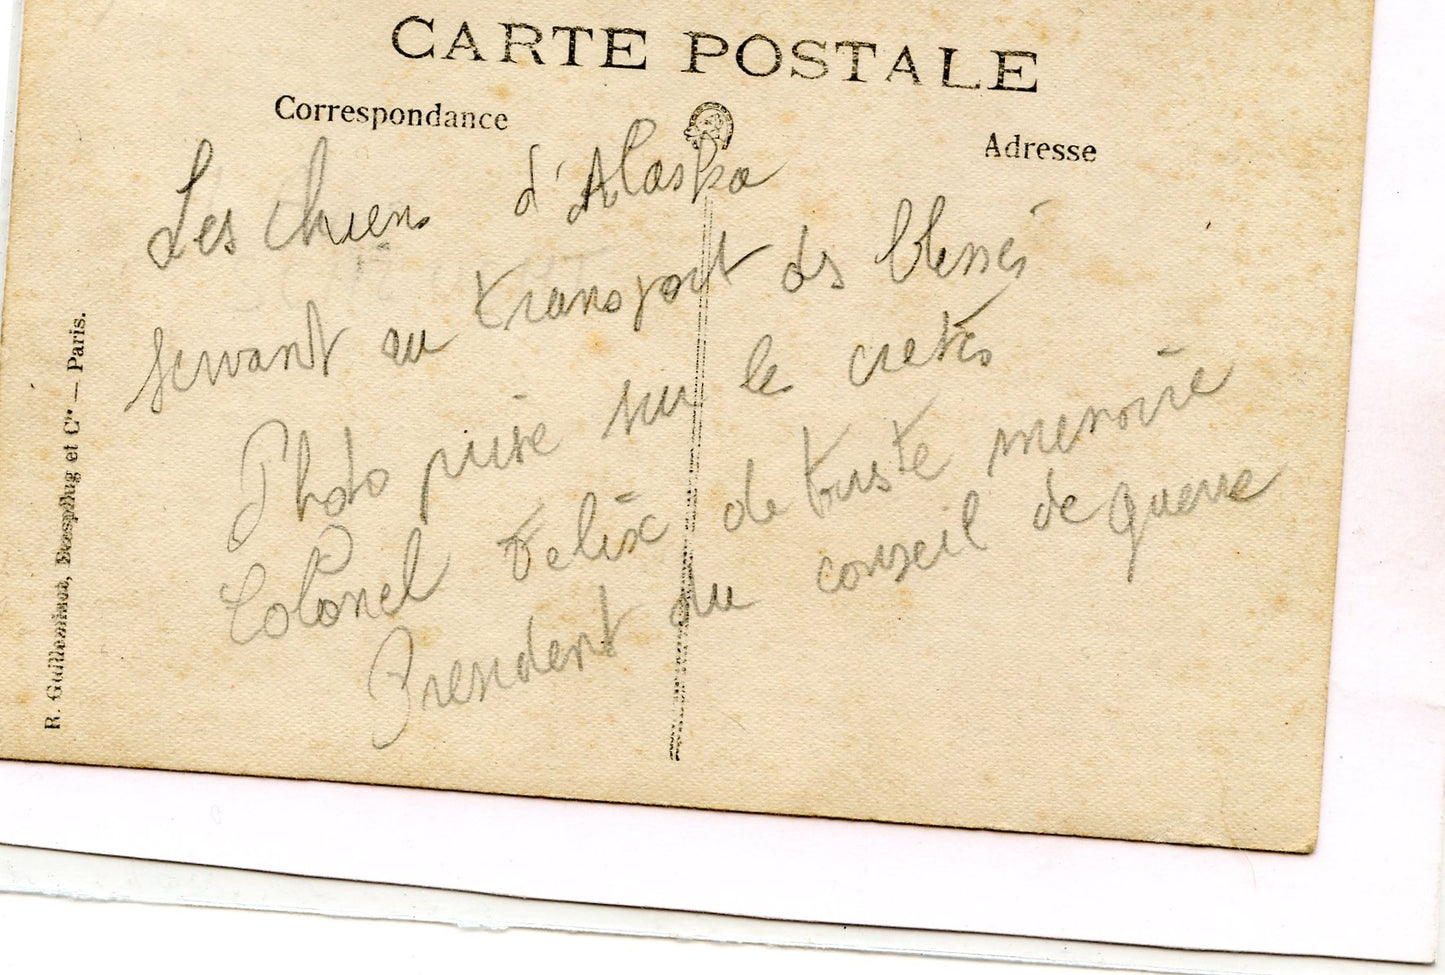 CARTE POSTALE
Correspondance
Adresse
Les chiens d'Alaska
servant au transport des blessés
Photo prise sur les cretes
Colonel Felix de triste memoire
President du conseil de guerre
R. Guilleminot, Bœspflug et Cie — Paris.